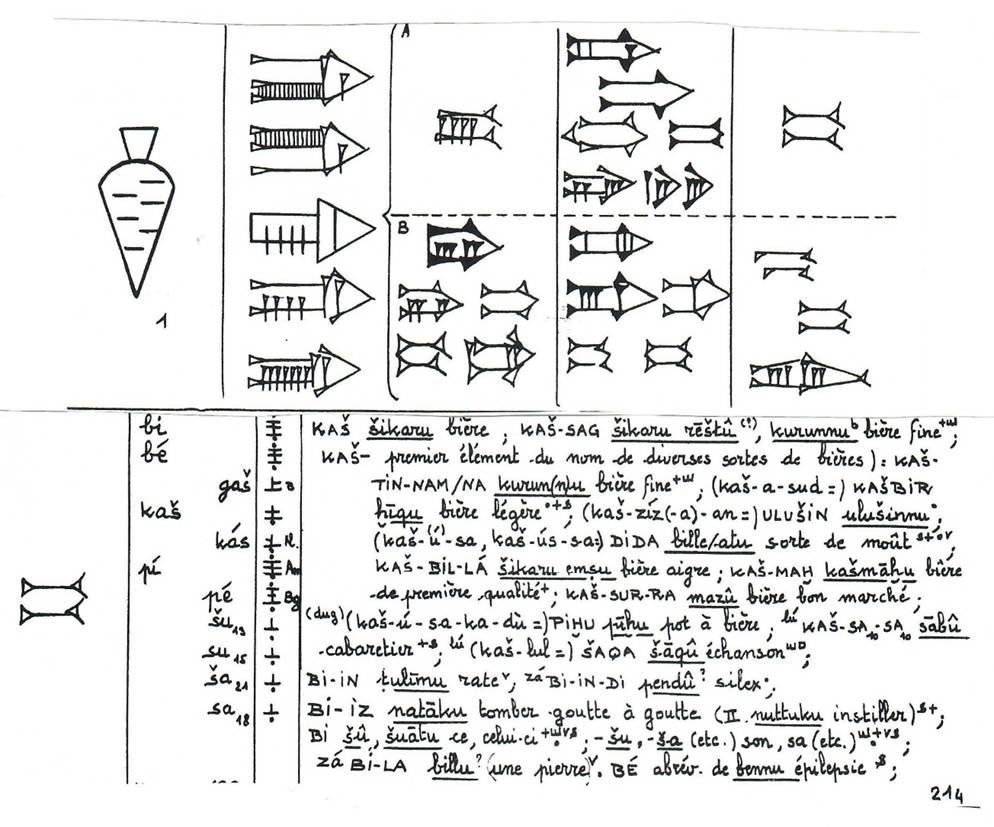 A
B
1
bi
bé
gaš
kaš
kás
pí
pé
šu₁₃
su₁₅
ša₂₁
sa₁₈
KAŠ šikaru bière ; KAŠ-SAG šikaru rēštû (?), kurunnu bière fine ;
KAŠ- premier élément du nom de diverses sortes de bières) : KAŠ-
TIN-NAM/NA kurun(n)u bière fine ; (kaš-a-sud =) KAŠBIR
hīqu bière légère ; (kaš-zíz(-a)-an =) ULUŠIN ulušinnu ;
(kaš-ú-sa, kaš-ús-sa =) DIDA bille/atu sorte de moût ;
KAŠ-BIL-LÁ šikaru emsu bière aigre ; KAŠ-MAH kašmāhu bière
de première qualité ; KAŠ-SUR-RA mazû bière bon marché ;
(dug) (kaš-ú-sa-ka-dù =) PIHU pīhu pot à bière ; lú KAŠ-SA₁₀-SA₁₀ sābû
cabaretier ; lú (kaš-lul =) ŠAQA šāqû échanson ;
BI-IN ṭulīmu rate ; zá BI-IN-DI pendû ? silex ;
BI-IZ natāku tomber goutte à goutte (II nuttuku instiller) ;
BI šû, šuātu ce, celui-ci ; -šu, -ša (etc.) son, sa (etc.) ;
zá BÍ-LA billu ? (une pierre). BÉ abrév. de bennu épilepsie ;
214